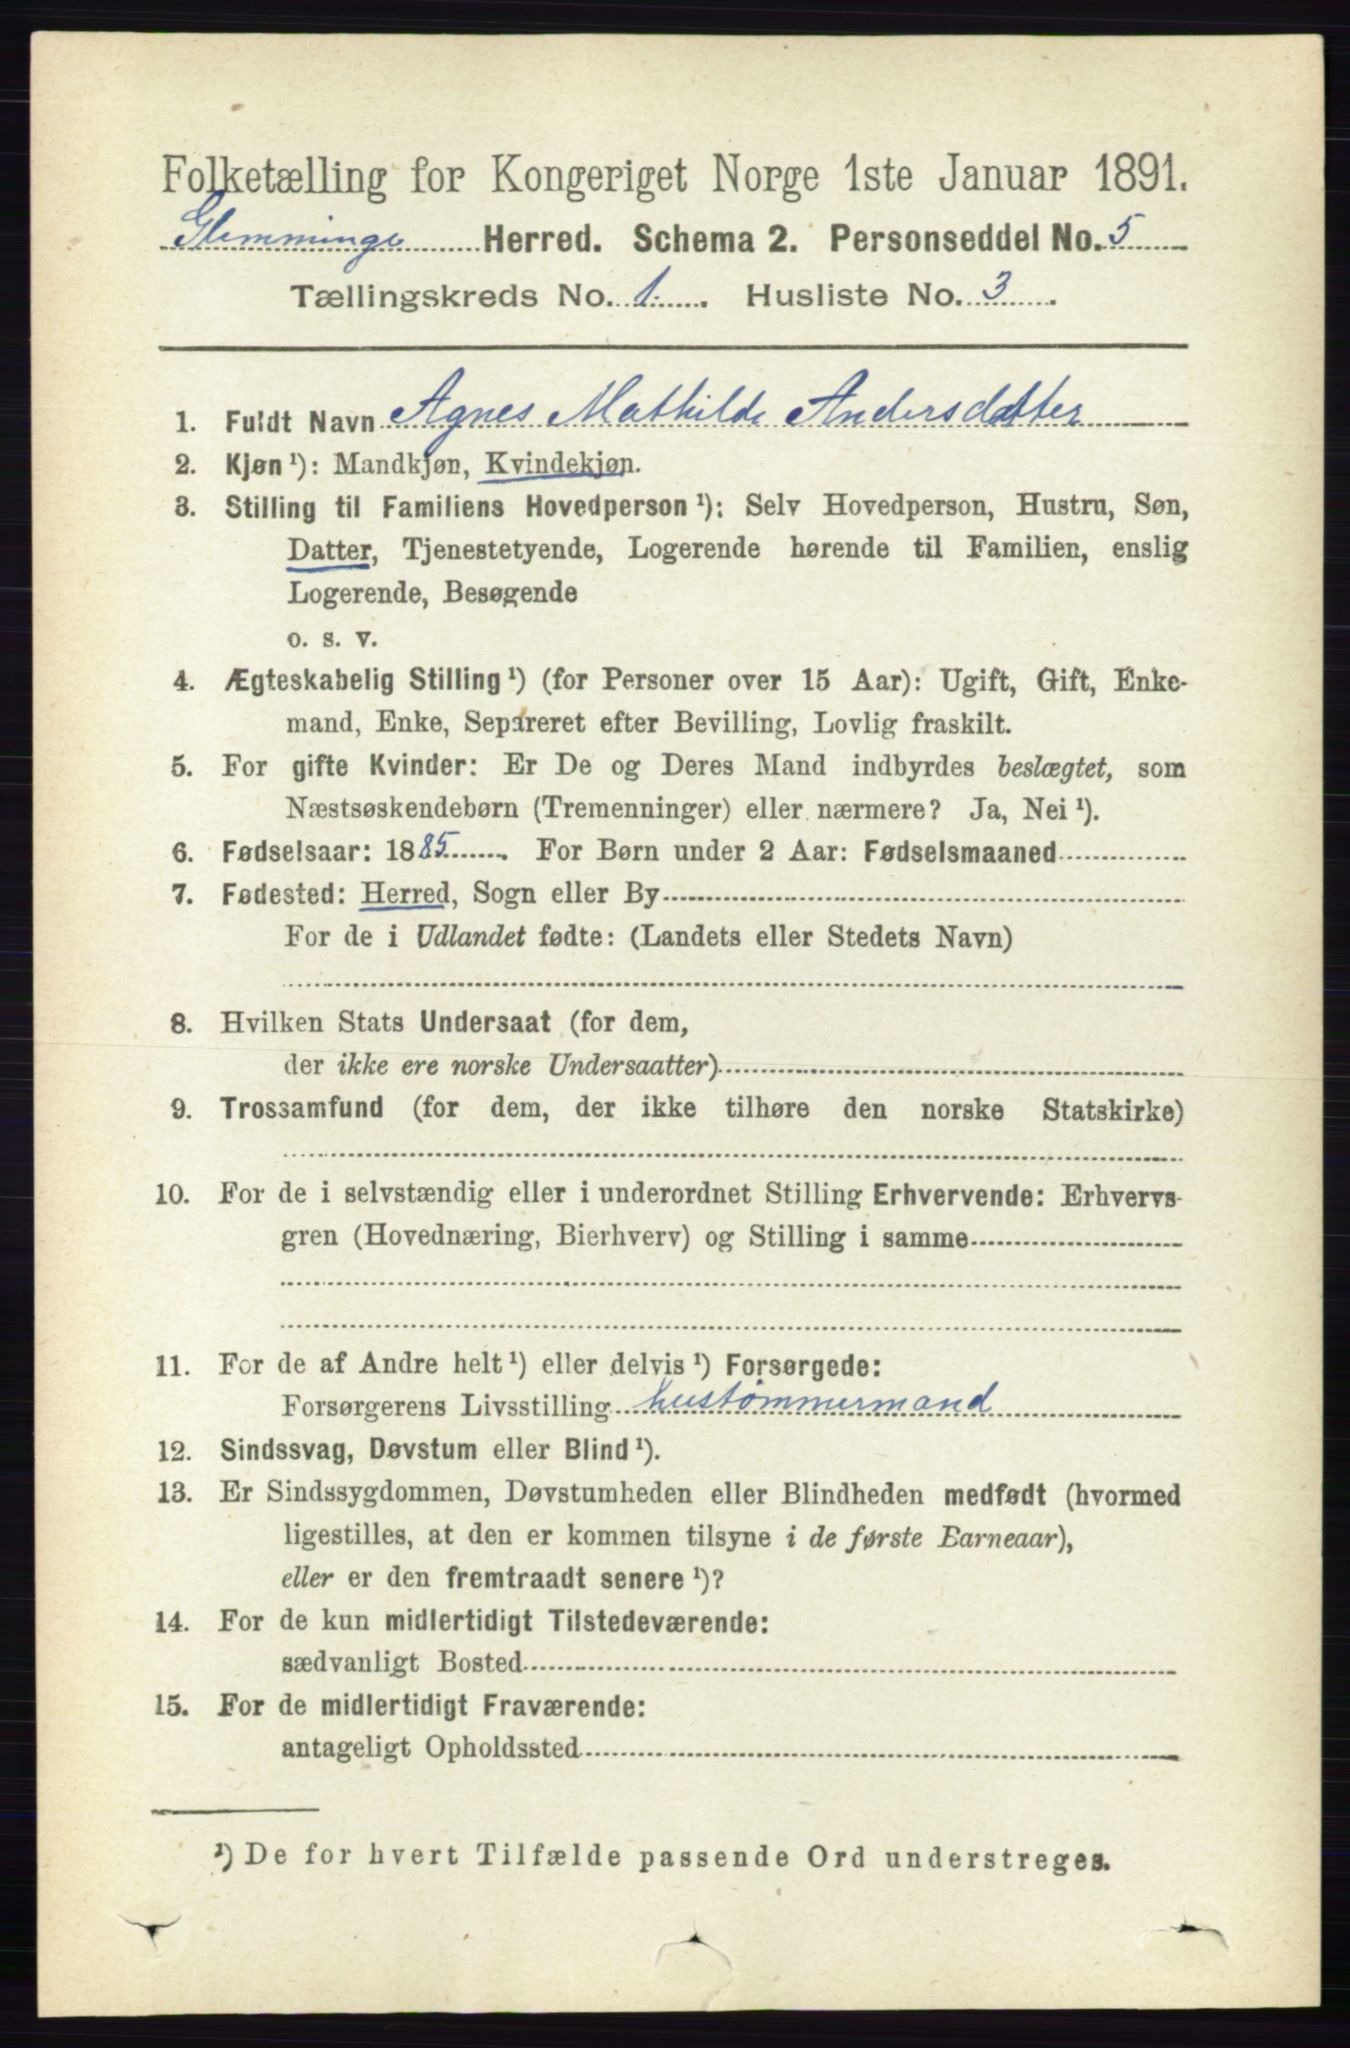 Folketælling for Kongeriget Norge 1ste Januar 1891.
Glemminge Herred. Schema 2. Personseddel No. 5
Tællingskreds No. 1. Husliste No. 3.
1. Fuldt Navn Agnes Mathilde Andersdatter
2. Kjøn¹): Mandkjøn, Kvindekjøn.
3. Stilling til Familiens Hovedperson¹): Selv Hovedperson, Hustru, Søn,
Datter, Tjenestetyende, Logerende hørende til Familien, enslig
Logerende, Besøgende
o. s. v.
4. Ægteskabelig Stilling¹) (for Personer over 15 Aar): Ugift, Gift, Enke-
mand, Enke, Separeret efter Bevilling, Lovlig fraskilt.
5. For gifte Kvinder: Er De og Deres Mand indbyrdes beslægtet, som
Næstsøskendebørn (Tremenninger) eller nærmere? Ja, Nei¹).
6. Fødselsaar: 1885. For Børn under 2 Aar: Fødselsmaaned
7. Fødested: Herred, Sogn eller By
For de i Udlandet fødte: (Landets eller Stedets Navn)
8. Hvilken Stats Undersaat (for dem,
der ikke ere norske Undersaatter)
9. Trossamfund (for dem, der ikke tilhøre den norske Statskirke)
10. For de i selvstændig eller i underordnet Stilling Erhvervende: Erhvervs-
gren (Hovednæring, Bierhverv) og Stilling i samme
11. For de af Andre helt¹) eller delvis¹) Forsørgede:
Forsørgerens Livsstilling hustømmermand
12. Sindssvag, Døvstum eller Blind¹).
13. Er Sindssygdommen, Døvstumheden eller Blindheden medfødt (hvormed
ligestilles, at den er kommen tilsyne i de første Barneaar),
eller er den fremtraadt senere¹)?
14. For de kun midlertidigt Tilstedeværende:
sædvanligt Bosted
15. For de midlertidigt Fraværende:
antageligt Opholdssted
¹) De for hvert Tilfælde passende Ord understreges.